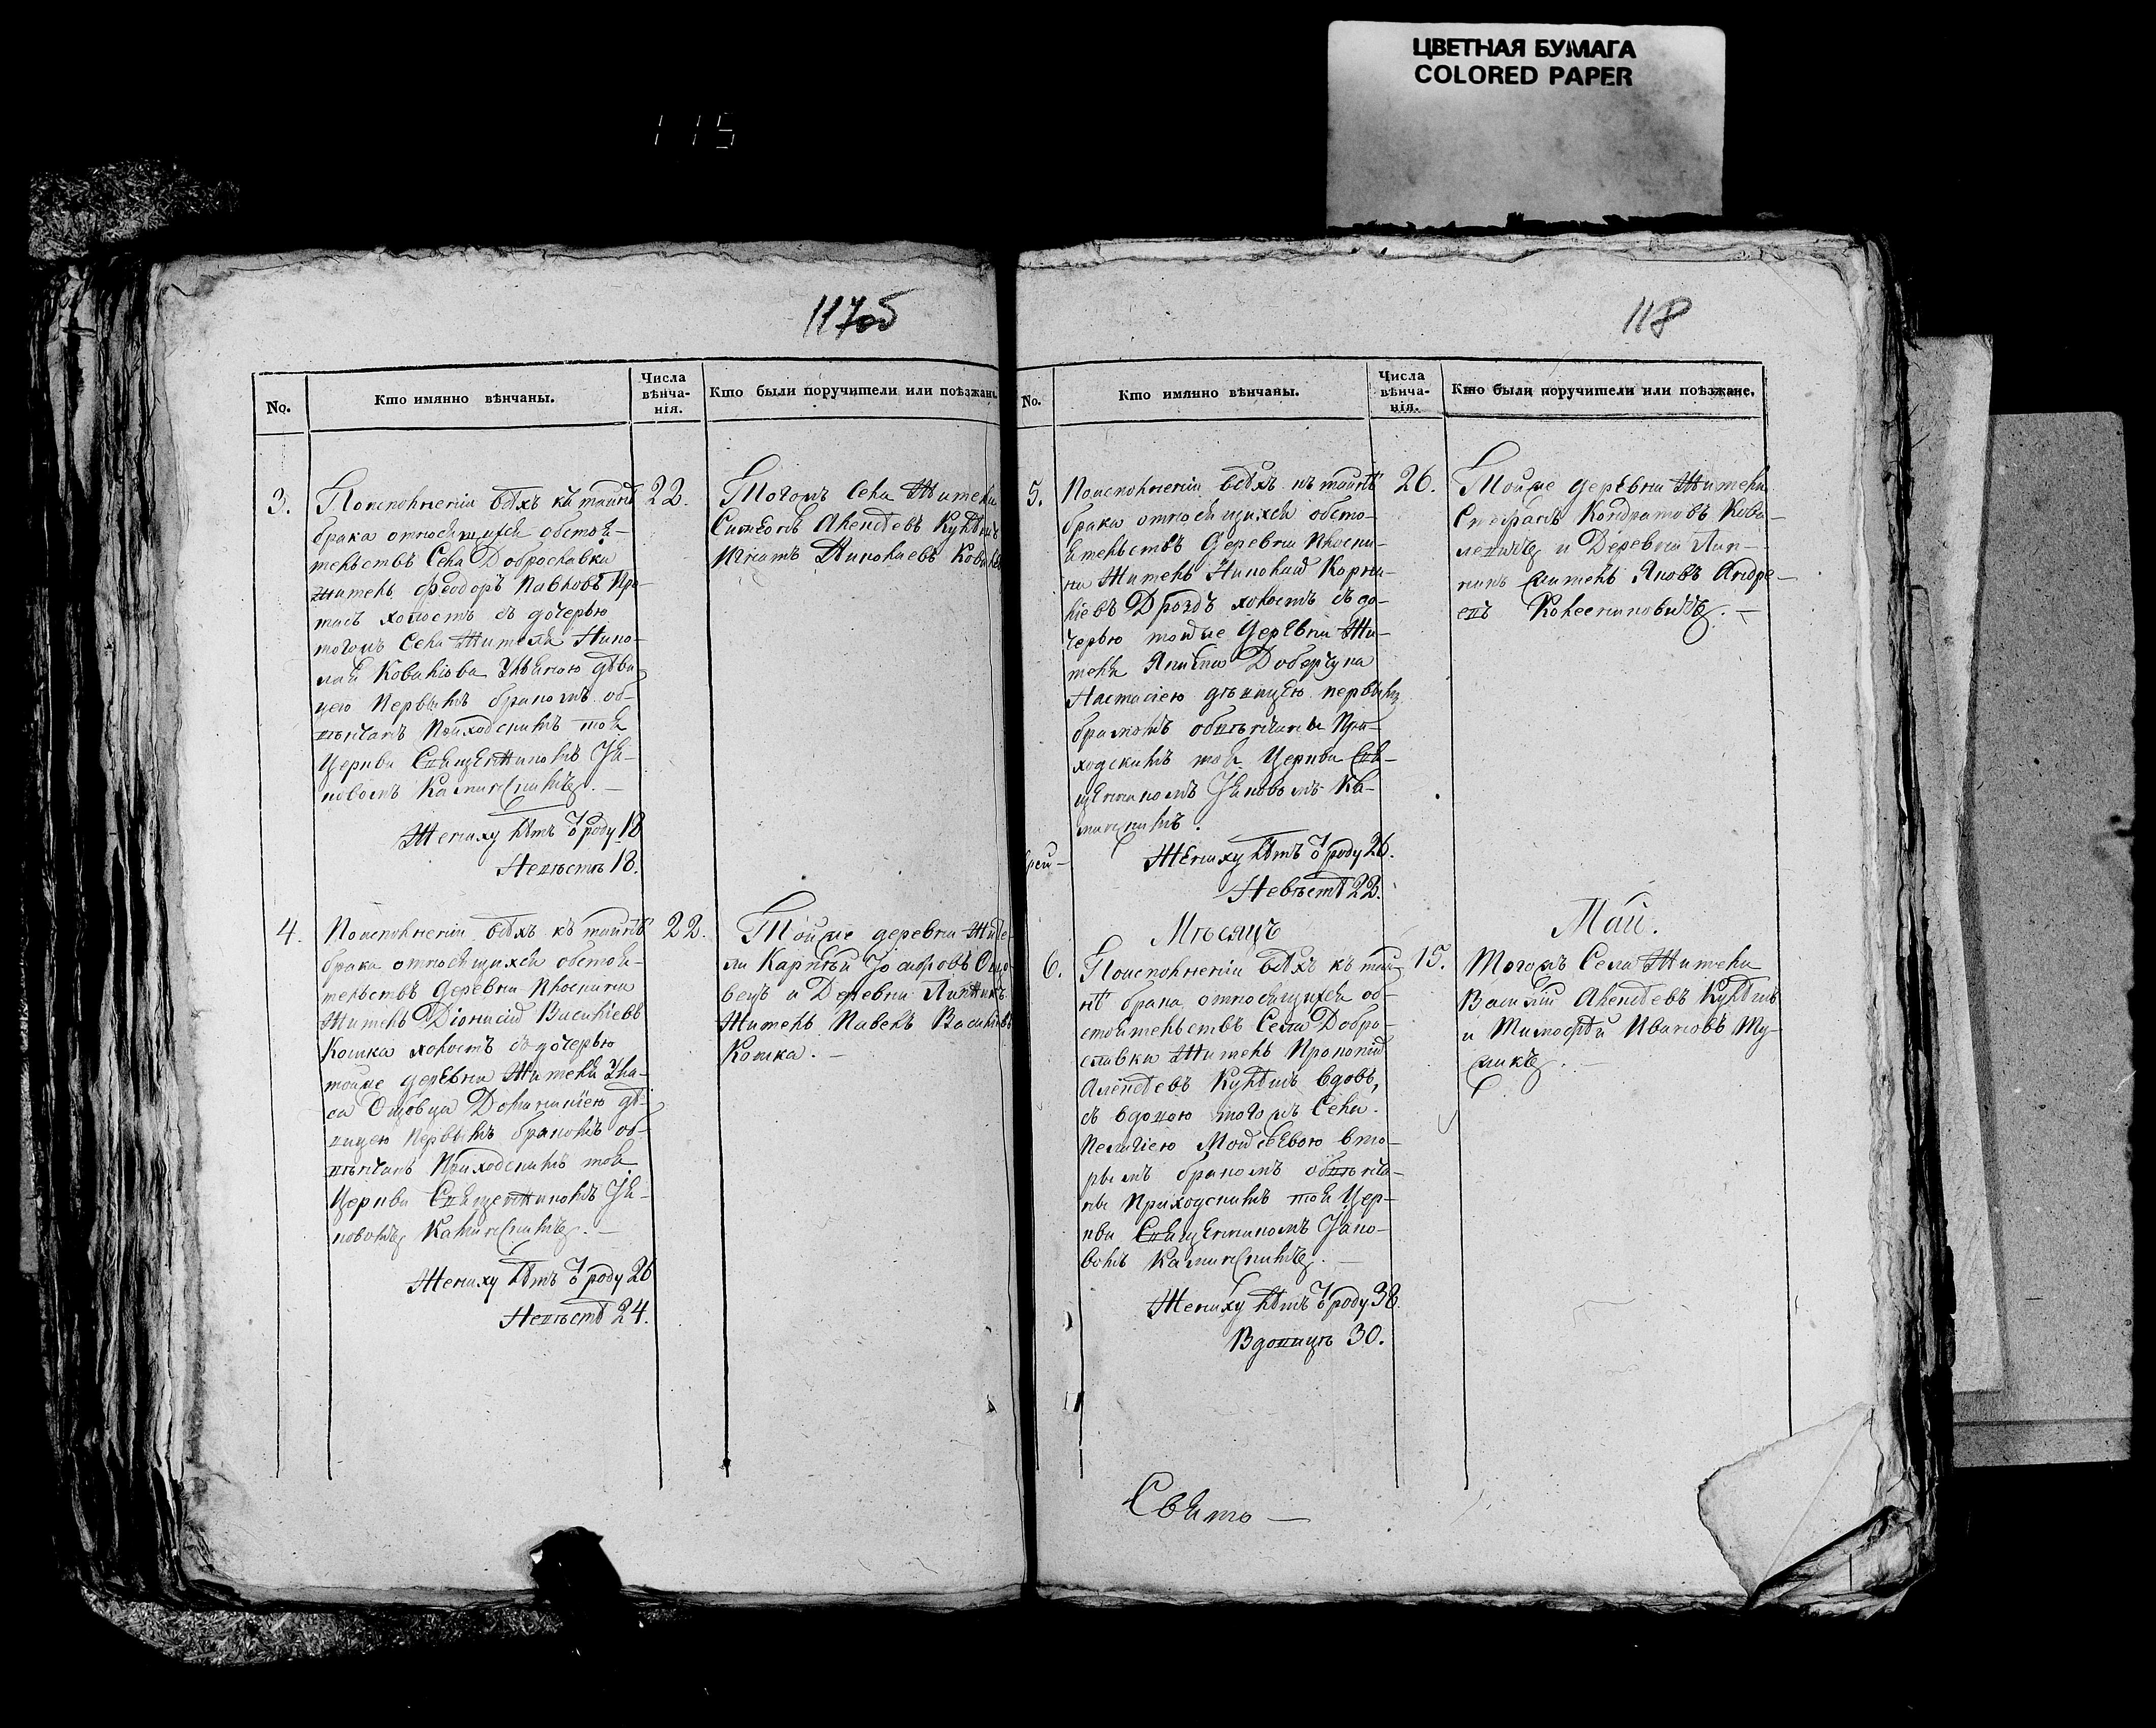 ЦВЕТНАЯ БУМАГА
COLORED PAPER
115
117об
No.
Кто имянно вѣнчаны.
Числа вѣнча-нія.
Кто были поручители или поѣзжане.
3.
По исполненіи всѣхъ къ тайнѣ
брака относящихся обстоя-
тельствъ Села Доброславки
житель Феодоръ Павловъ
холостъ съ дочерью
тогожъ Села Жителя Нико-
лая Ковалюва Ульяною дѣви
цею Первымъ бракомъ об-
вѣнчанъ Приходскимъ тоя
Церкви Священникомъ Іа-
ковомъ Каминскимъ. —
Жениху лѣтъ ѿ роду 18
Невѣстѣ 18.
22.
Тогожъ Села Жители
Симеонъ Алексѣевъ
Игнатъ Николаевъ
4.
По исполненіи всѣхъ къ тайнѣ
брака относящихся обстоя-
тельствъ Деревни Плоскини
Житель Діонисій Василіевъ
Кошка холостъ съ дочерью
тойже деревни Жителя Ула-
са Ощовца Доминикіею дѣ-
вицею Первымъ бракомъ об-
вѣнчанъ Приходскимъ тоя
Церкви Священникомъ Іа-
ковомъ Каминскимъ. —
Жениху лѣтъ ѿ роду 26
Невѣстѣ 24.
22.
Тойже деревни Жите-
ли Карпѣй Іосифовъ Ощо-
вецъ и Деревни Липникъ
Житель Павелъ Василіевъ
Кошка. —
118
No.
Кто имянно вѣнчаны.
Числа вѣнча-нія.
Кто были поручители или поѣзжане.
5.
По исполненіи всѣхъ къ тайнѣ
брака относящихся обсто-
ятельствъ Деревни Плоски-
ни Житель Николай Корни-
ліевъ Дроздъ холостъ съ до-
черью тойже Деревни Жи-
теля Якима Доберчука
Настасіею дѣвицею первымъ
бракомъ обвѣнчаны При-
ходскимъ тоя Церкви Свя-
щенникомъ Іаковомъ Ка-
минскимъ.
Жениху лѣтъ ѿ роду 26.
Невѣстѣ 22.
26.
Тойже деревни Жители
Стефанъ Кондратовъ Кова-
левичъ и Деревни Лип-
никъ житель Яковъ Андре-
евъ Колесниковичъ. —
Мѣсяцъ
Май.
6.
По исполненіи всѣхъ къ тай-
нѣ брака относящихся об-
стоятельствъ Села Добро-
славки Житель Прокопій
Алексѣевъ вдовъ,
съ вдовою тогожъ Села
Пелагіею Мойсѣевою вто-
рымъ бракомъ обвѣнча-
ны Приходскимъ тоя Цер-
кви Священникомъ Іако-
вомъ Каминскимъ. —
Жениху лѣтъ ѿ роду 38.
Вдовицѣ 30.
15.
Тогожъ Села Жители
Василій Алексѣевъ
и Тимофѣй Ивановъ
Свято —